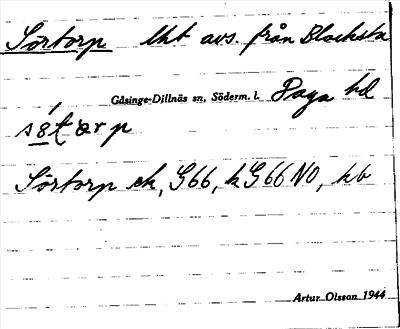 Sörtorp lht avs. från Blacksta
Gåsinge-Dillnäs sn, Söderm. l. Daga hd
Sörtorp ek, G66, kG66NO, kb
Artur Olsson 1944